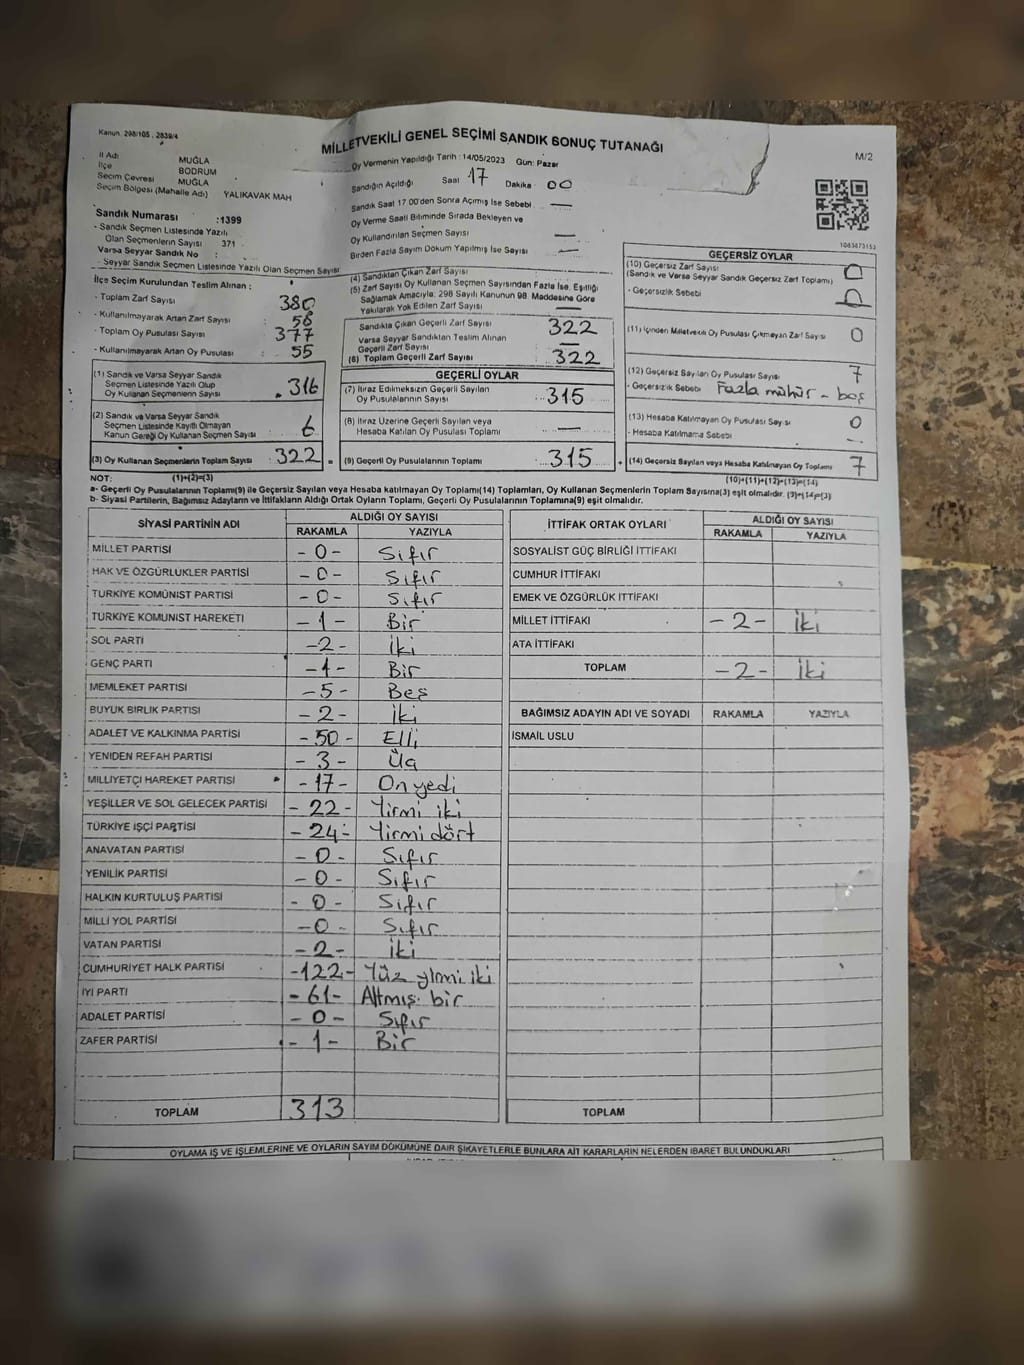 Kanun. 298/105 , 2839/4
MİLLETVEKİLİ GENEL SEÇİMİ SANDIK SONUÇ TUTANAĞI
M/2
İl Adı MUĞLA
İlçe BODRUM
Seçim Çevresi MUĞLA
Seçim Bölgesi (Mahalle Adı) YALIKAVAK MAH
Oy Vermenin Yapıldığı Tarih : 14/05/2023 Gün: Pazar
Sandığın Açıldığı Saat 17 Dakika . 00
Sandık Saat 17.00'den Sonra Açmış İse Sebebi —
Oy Verme Saati Bitiminde Sırada Bekleyen ve
Oy Kullandırılan Seçmen Sayısı —
Birden Fazla Sayım Döküm Yapılmış İse Sayısı —
Sandık Numarası :1399
- Sandık Seçmen Listesinde Yazılı
Olan Seçmenlerin Sayısı 371
Varsa Seyyar Sandık No :
- Seyyar Sandık Seçmen Listesinde Yazılı Olan Seçmen Sayısı
İlçe Seçim Kurulundan Teslim Alınan :
- Toplam Zarf Sayısı 380
- Kullanılmayarak Artan Zarf Sayısı : 58
- Toplam Oy Pusulası Sayısı 377
- Kullanılmayarak Artan Oy Pusulası : 55
(1) Sandık ve Varsa Seyyar Sandık
Seçmen Listesinde Yazılı Olup
Oy Kullanan Seçmenlerin Sayısı 316
(2) Sandık ve Varsa Seyyar Sandık
Seçmen Listesinde Kayıtlı Olmayan
Kanun Gereği Oy Kullanan Seçmen Sayısı 6
(3) Oy Kullanan Seçmenlerin Toplam Sayısı 322
(1)+(2)=(3)
(4) Sandıktan Çıkan Zarf Sayısı
(5) Zarf Sayısı Oy Kullanan Seçmen Sayısından Fazla İse, Eşitliği
Sağlamak Amacıyla, 298 Sayılı Kanunun 98. Maddesine Göre
Yakılarak Yok Edilen Zarf Sayısı —
Sandıkta Çıkan Geçerli Zarf Sayısı 322
Varsa Seyyar Sandıktan Teslim Alınan
Geçerli Zarf Sayısı —
(6) Toplam Geçerli Zarf Sayısı 322
GEÇERLİ OYLAR
(7) İtiraz Edilmeksizin Geçerli Sayılan
Oy Pusulalarının Sayısı 315
(8) İtiraz Üzerine Geçerli Sayılan veya
Hesaba Katılan Oy Pusulası Toplamı —
= (9) Geçerli Oy Pusulalarının Toplamı 315
1083873153
GEÇERSİZ OYLAR
(10) Geçersiz Zarf Sayısı 0
(Sandık ve Varsa Seyyar Sandık Geçersiz Zarf Toplamı)
- Geçersizlik Sebebi
(11) İçinden Milletvekili Oy Pusulası Çıkmayan Zarf Sayısı 0
(12) Geçersiz Sayılan Oy Pusulası Sayısı 7
- Geçersizlik Sebebi Fazla mühür - boş
(13) Hesaba Katılmayan Oy Pusulası Sayısı 0
- Hesaba Katılmama Sebebi —
+ (14) Geçersiz Sayılan veya Hesaba Katılmayan Oy Toplamı 7
(10)+(11)+(12)+(13)=(14)
NOT:
a- Geçerli Oy Pusulalarının Toplamı(9) ile Geçersiz Sayılan veya Hesaba katılmayan Oy Toplamı(14) Toplamları, Oy Kullanan Seçmenlerin Toplam Sayısına(3) eşit olmalıdır. (9)+(14)=(3)
b- Siyasi Partilerin, Bağımsız Adayların ve İttifakların Aldığı Ortak Oyların Toplamı, Geçerli Oy Pusulalarının Toplamına(9) eşit olmalıdır.
SİYASİ PARTİNİN ADI ALDIĞI OY SAYISI
RAKAMLA YAZIYLA
MİLLET PARTİSİ -0- Sıfır
HAK VE ÖZGÜRLÜKLER PARTİSİ -0- Sıfır
TÜRKİYE KOMÜNİST PARTİSİ -0- Sıfır
TÜRKİYE KOMÜNİST HAREKETİ -1- Bir
SOL PARTİ -2- İki
GENÇ PARTİ -1- Bir
MEMLEKET PARTİSİ -5- Beş
BÜYÜK BİRLİK PARTİSİ -2- İki
ADALET VE KALKINMA PARTİSİ -50- Elli
YENİDEN REFAH PARTİSİ -3- Üç
MİLLİYETÇİ HAREKET PARTİSİ -17- On yedi
YEŞİLLER VE SOL GELECEK PARTİSİ -22- Yirmi iki
TÜRKİYE İŞÇİ PARTİSİ -24- Yirmi dört
ANAVATAN PARTİSİ -0- Sıfır
YENİLİK PARTİSİ -0- Sıfır
HALKIN KURTULUŞ PARTİSİ -0- Sıfır
MİLLİ YOL PARTİSİ -0- Sıfır
VATAN PARTİSİ -2- İki
CUMHURİYET HALK PARTİSİ -122- Yüz yirmi iki
İYİ PARTİ -61- Altmış bir
ADALET PARTİSİ -0- Sıfır
ZAFER PARTİSİ -1- Bir
TOPLAM 313
İTTİFAK ORTAK OYLARI ALDIĞI OY SAYISI
RAKAMLA YAZIYLA
SOSYALİST GÜÇ BİRLİĞİ İTTİFAKI
CUMHUR İTTİFAKI
EMEK VE ÖZGÜRLÜK İTTİFAKI
MİLLET İTTİFAKI -2- İki
ATA İTTİFAKI
TOPLAM -2- İki
BAĞIMSIZ ADAYIN ADI VE SOYADI RAKAMLA YAZIYLA
İSMAİL USLU
TOPLAM
OYLAMA İŞ VE İŞLEMLERİNE VE OYLARIN SAYIM DÖKÜMÜNE DAİR ŞİKAYETLERLE BUNLARA AİT KARARLARIN NELERDEN İBARET BULUNDUKLARI